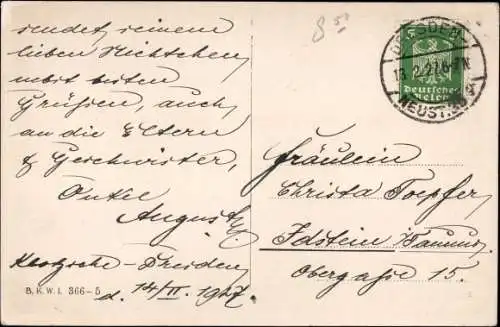 sendet seinem
lieben Nichtchen
nebst besten
Grüßen, auch
an die Eltern
& Geschwister,
Onkel
August
Klotzsche-Dresden,
d. 14/II. 1927.
B.K.W.I. 366-5
85
DRESDEN
13.2.27
NEUST.
Deutsches
Reich
Fräulein
Christa Toepfer,
Idstein, Taunus,
Obergasse 15.